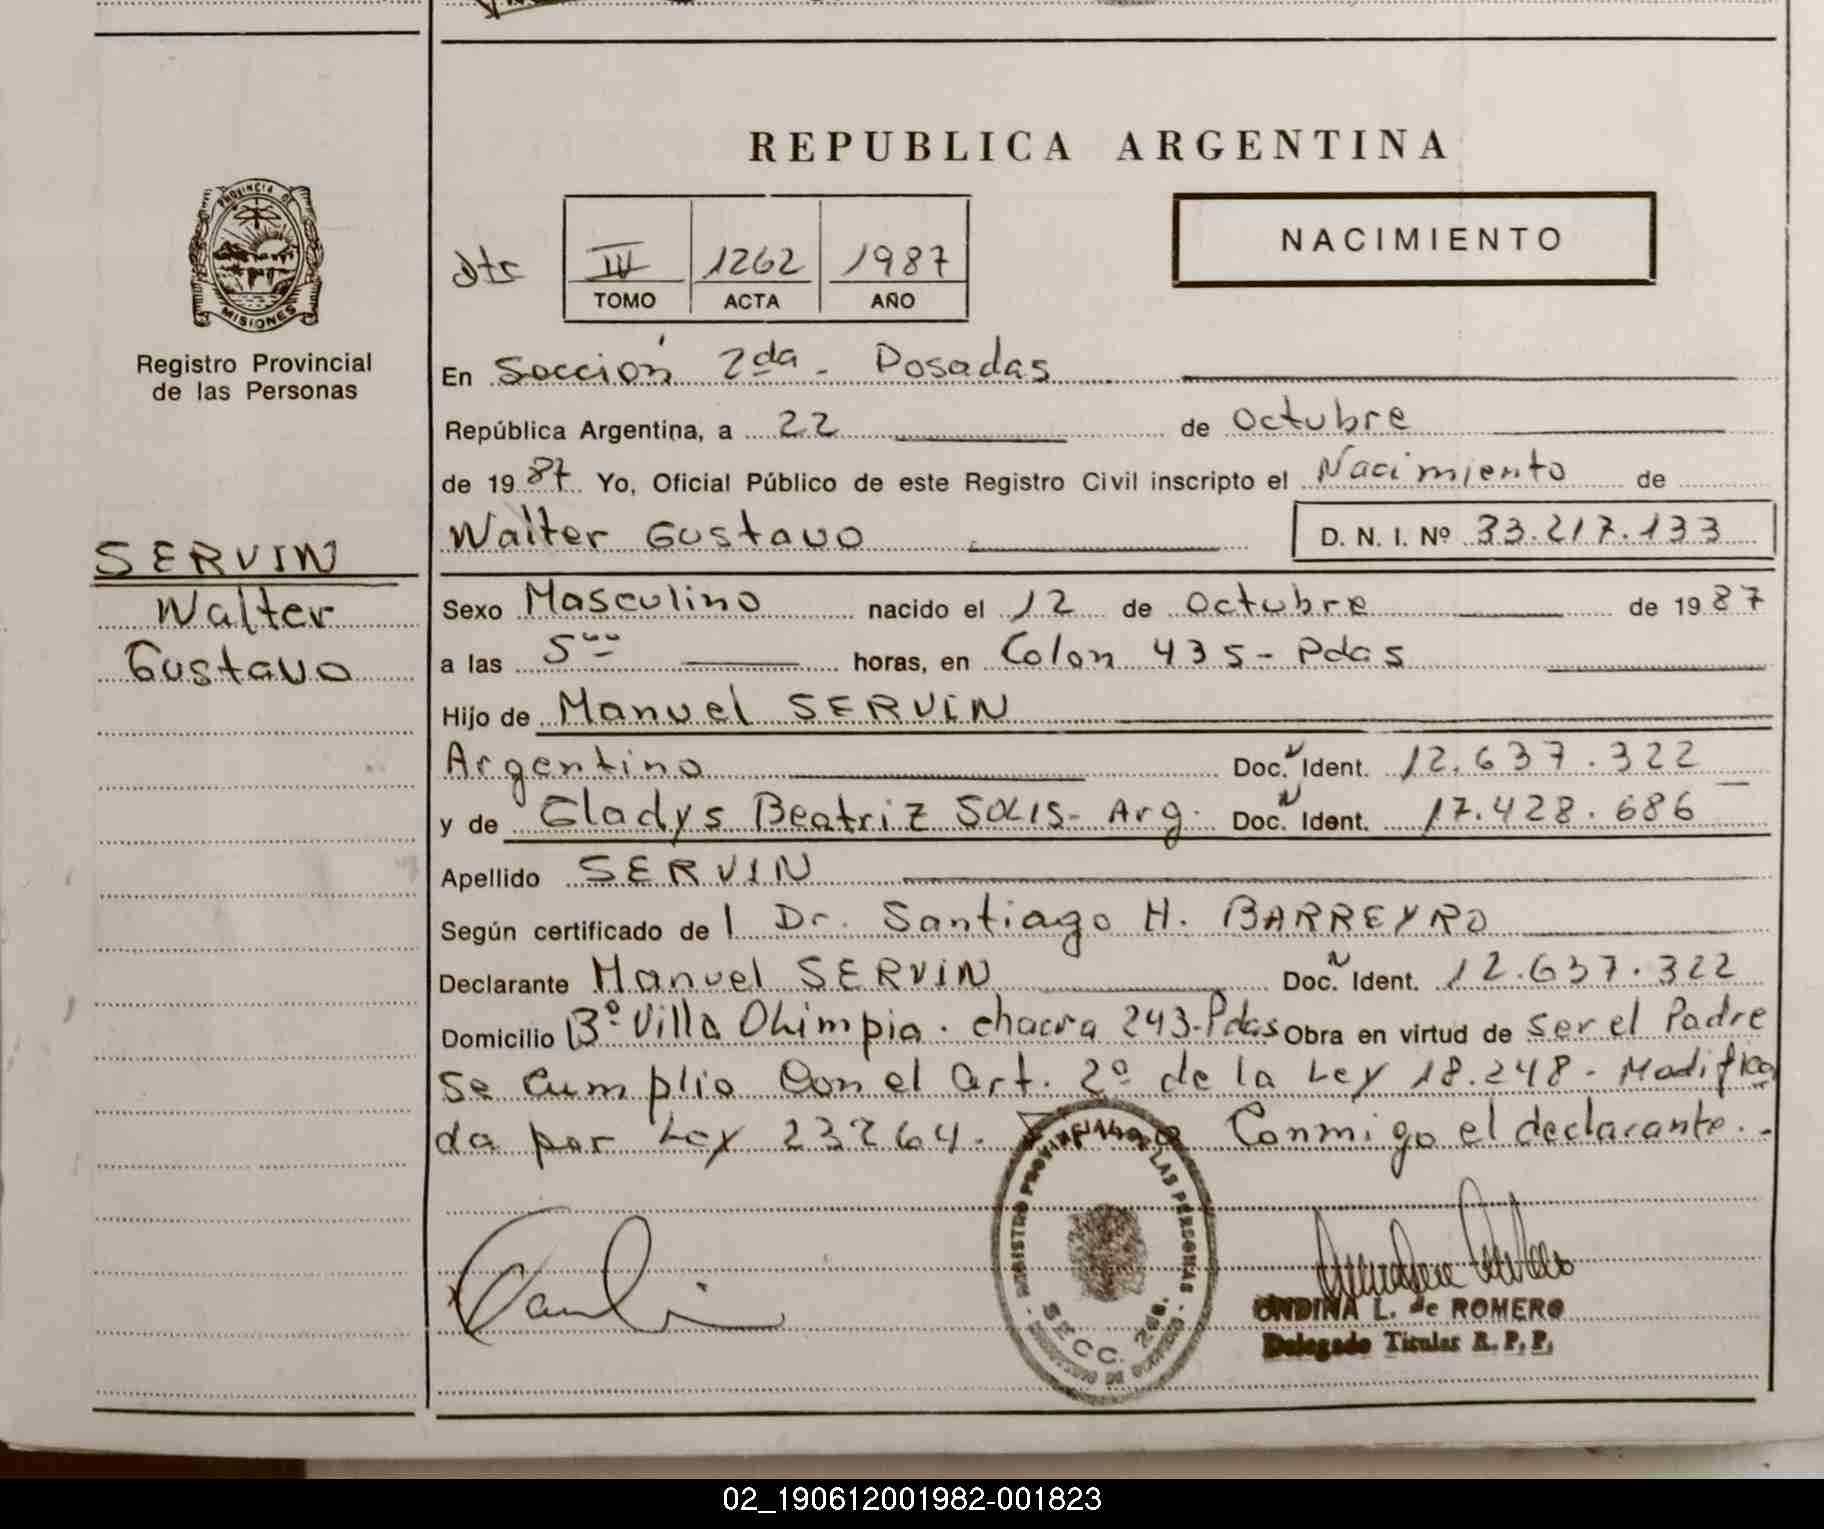 REPUBLICA ARGENTINA
PROVINCIA DE
MISIONES
Registro Provincial
de las Personas
NACIMIENTO
IV 1262 1987
TOMO ACTA AÑO
En Sección 2da - Posadas
República Argentina, a 22 de Octubre
de 1987 Yo, Oficial Público de este Registro Civil inscripto el Nacimiento de
Walter Gustavo D. N. I. Nº 33.217.133
SERVIN
Walter
Gustavo
Sexo Masculino nacido el 12 de Octubre de 1987
a las 5 horas, en Colon 435 - Pdas
Hijo de Manuel SERVIN
Argentino Doc. N Ident. 12.637.322
y de Gladys Beatriz SOLIS - Arg. Doc. N Ident. 17.428.686
Apellido SERVIN
Según certificado de l Dr. Santiago H. BARREYRO
Declarante Manuel SERVIN Doc. N Ident. 12.637.322
Domicilio Bº Villa Olimpia. chacra 243-Pdas Obra en virtud de ser el Padre
Se Cumplio Con el art. 2º de la Ley 18.248 - Modifica
da por Ley 23264. Conmigo el declarante.-
REGISTRO PROVINCIAL DE LAS PERSONAS
SECC. 2da.
ONDINA L. de ROMERO
Delegado Titular R. P. P.
02_190612001982-001823